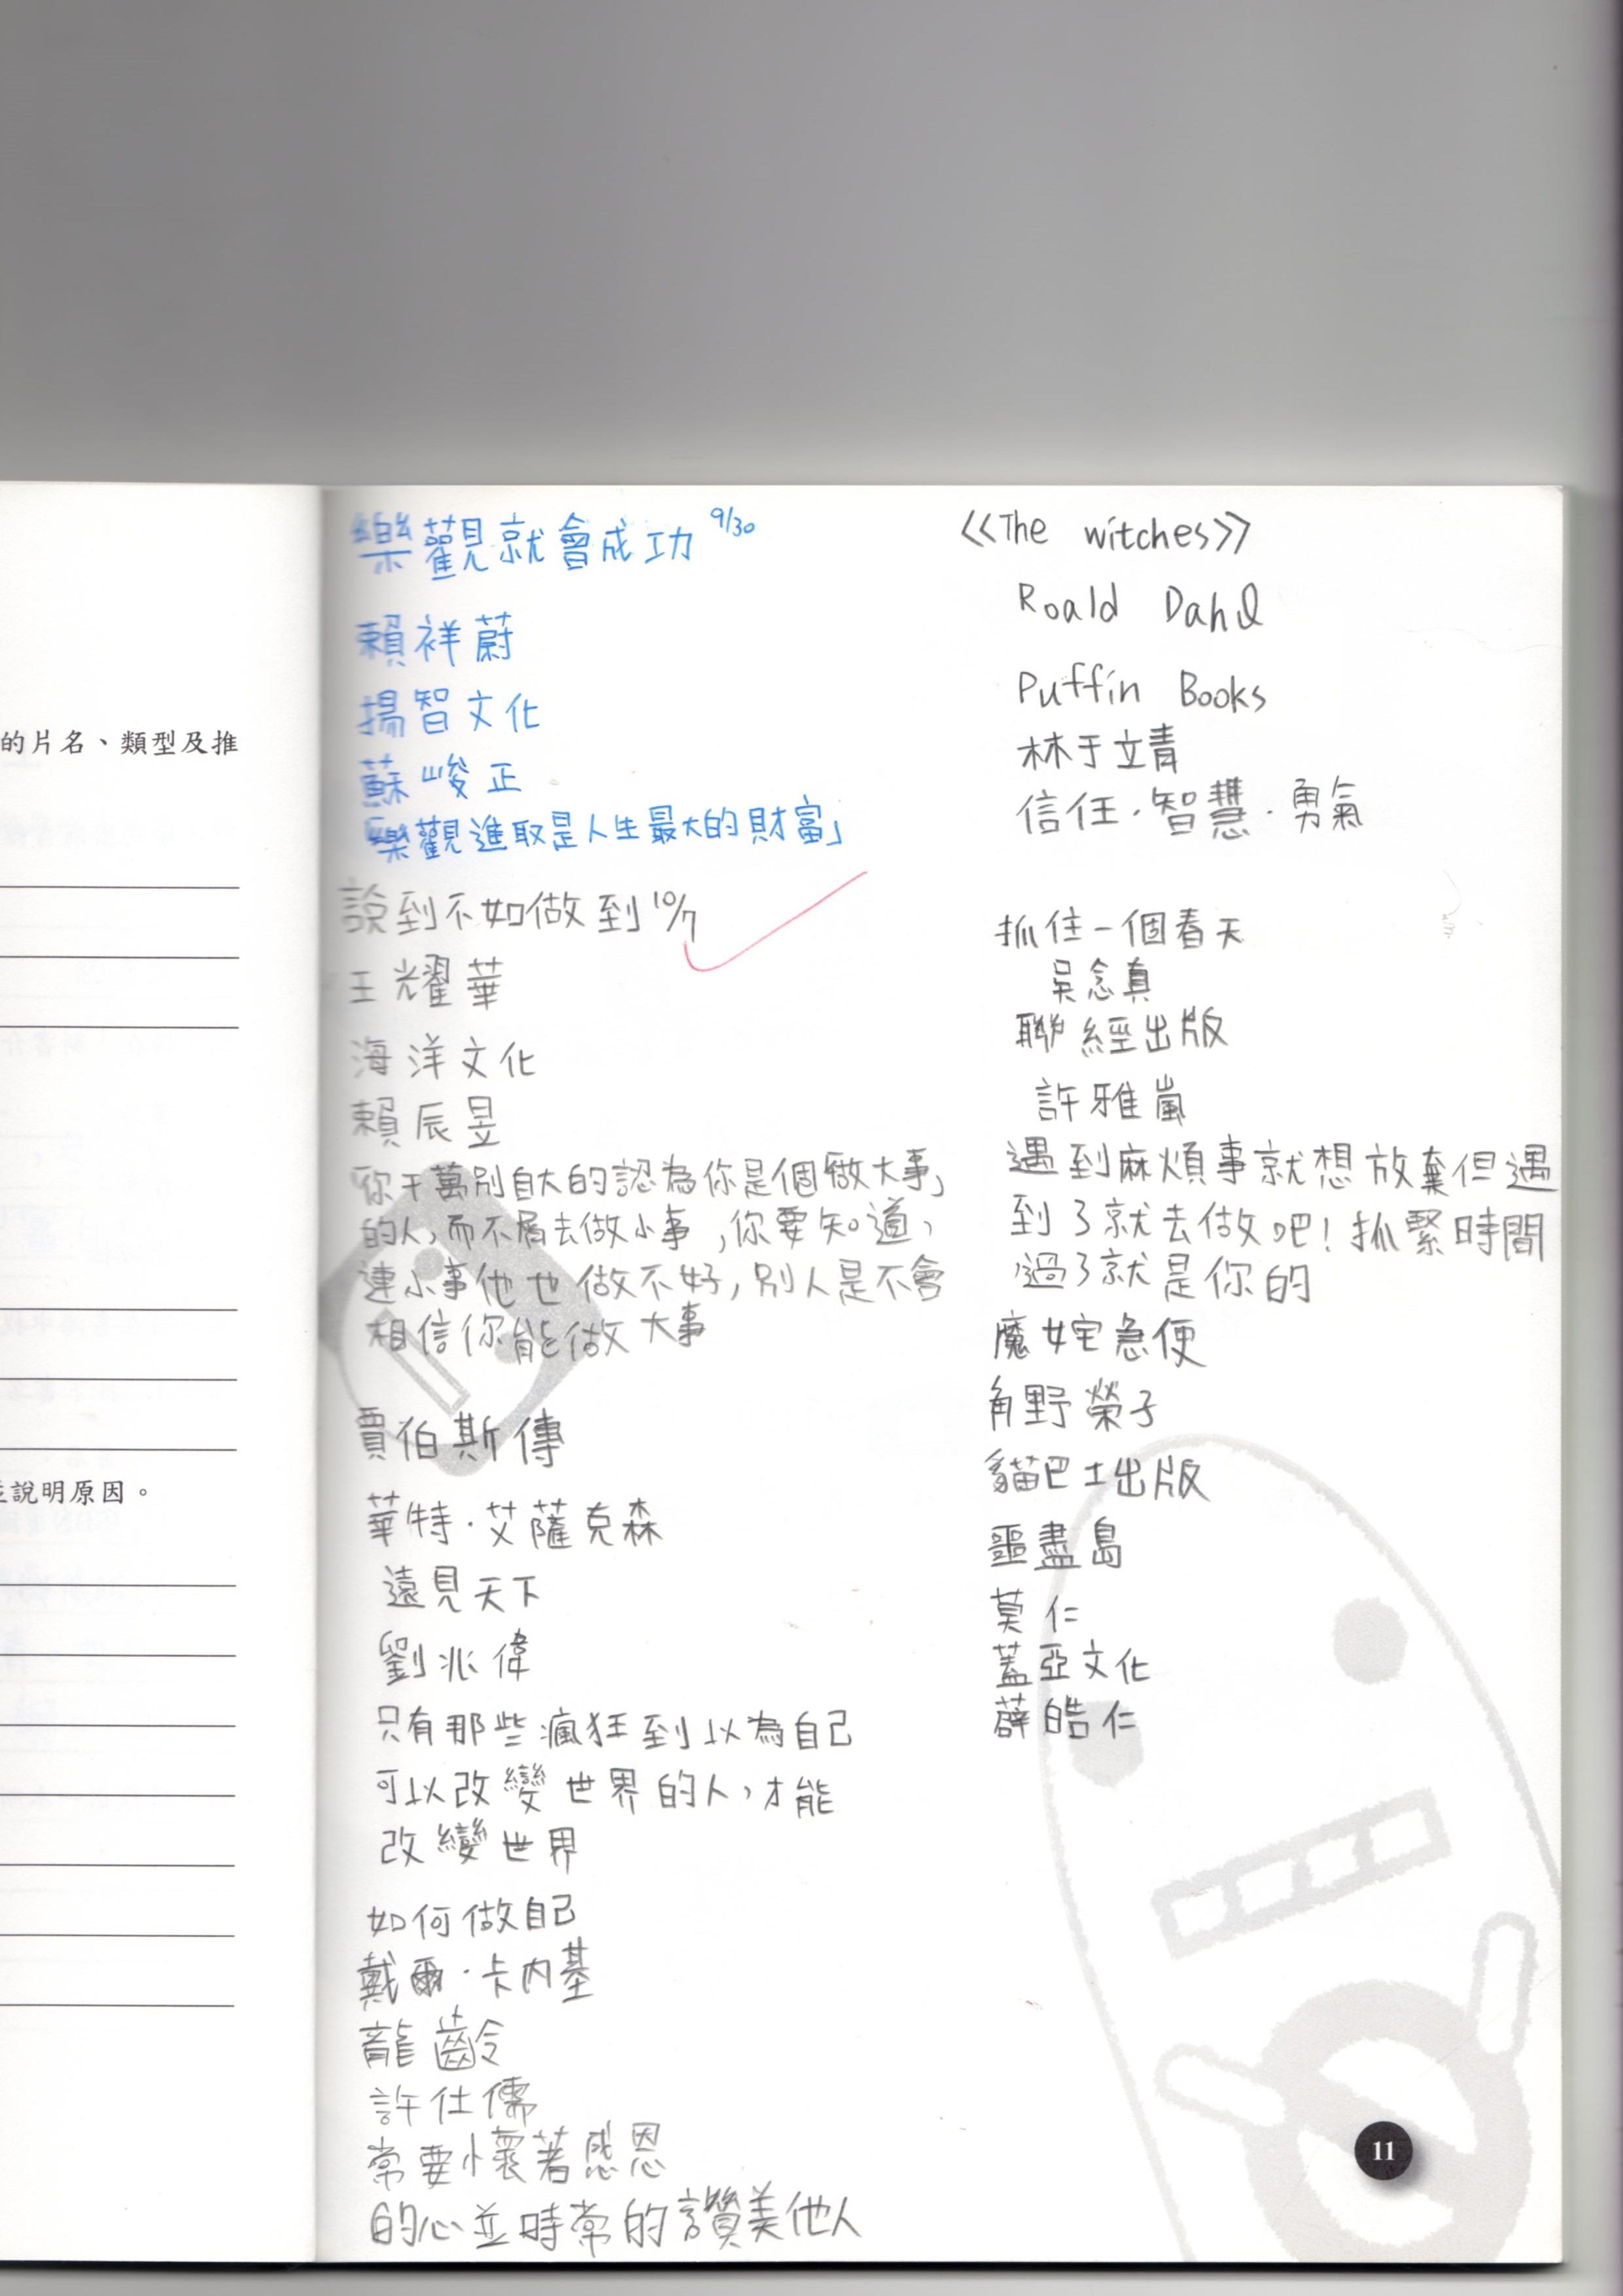 的片名、類型及推
說明原因。
樂觀就會成功 9/30
賴祥蔚
揚智文化
蘇峻正
「樂觀進取是人生最大的財富」
說到不如做到 10/7
王光耀華
海洋文化
賴辰昱
「你千萬別自大的認為你是個做大事」
的人,而不屑去做小事,你要知道,
連小事他也做不好,別人是不會
相信你能做大事
賈伯斯傳
華特·艾薩克森
遠見天下
劉兆偉
只有那些瘋狂到以為自己
可以改變世界的人,才能
改變世界
如何做自己
戴爾·卡內基
龍齡
許仕儒
常要懷著感恩
的心並時常的讚美他人
<<The witches>>
Roald Dahl
Puffin Books
林于立青
信任·智慧·勇氣
抓住一個春天
吳念真
聯經出版
許雅嵐
遇到麻煩事就想放棄但遇
到了就去做吧!抓緊時間
過了就是你的
魔女宅急便
角野榮子
貓巴士出版
噩盡島
莫仁
蓋亞文化
薛皓仁
11